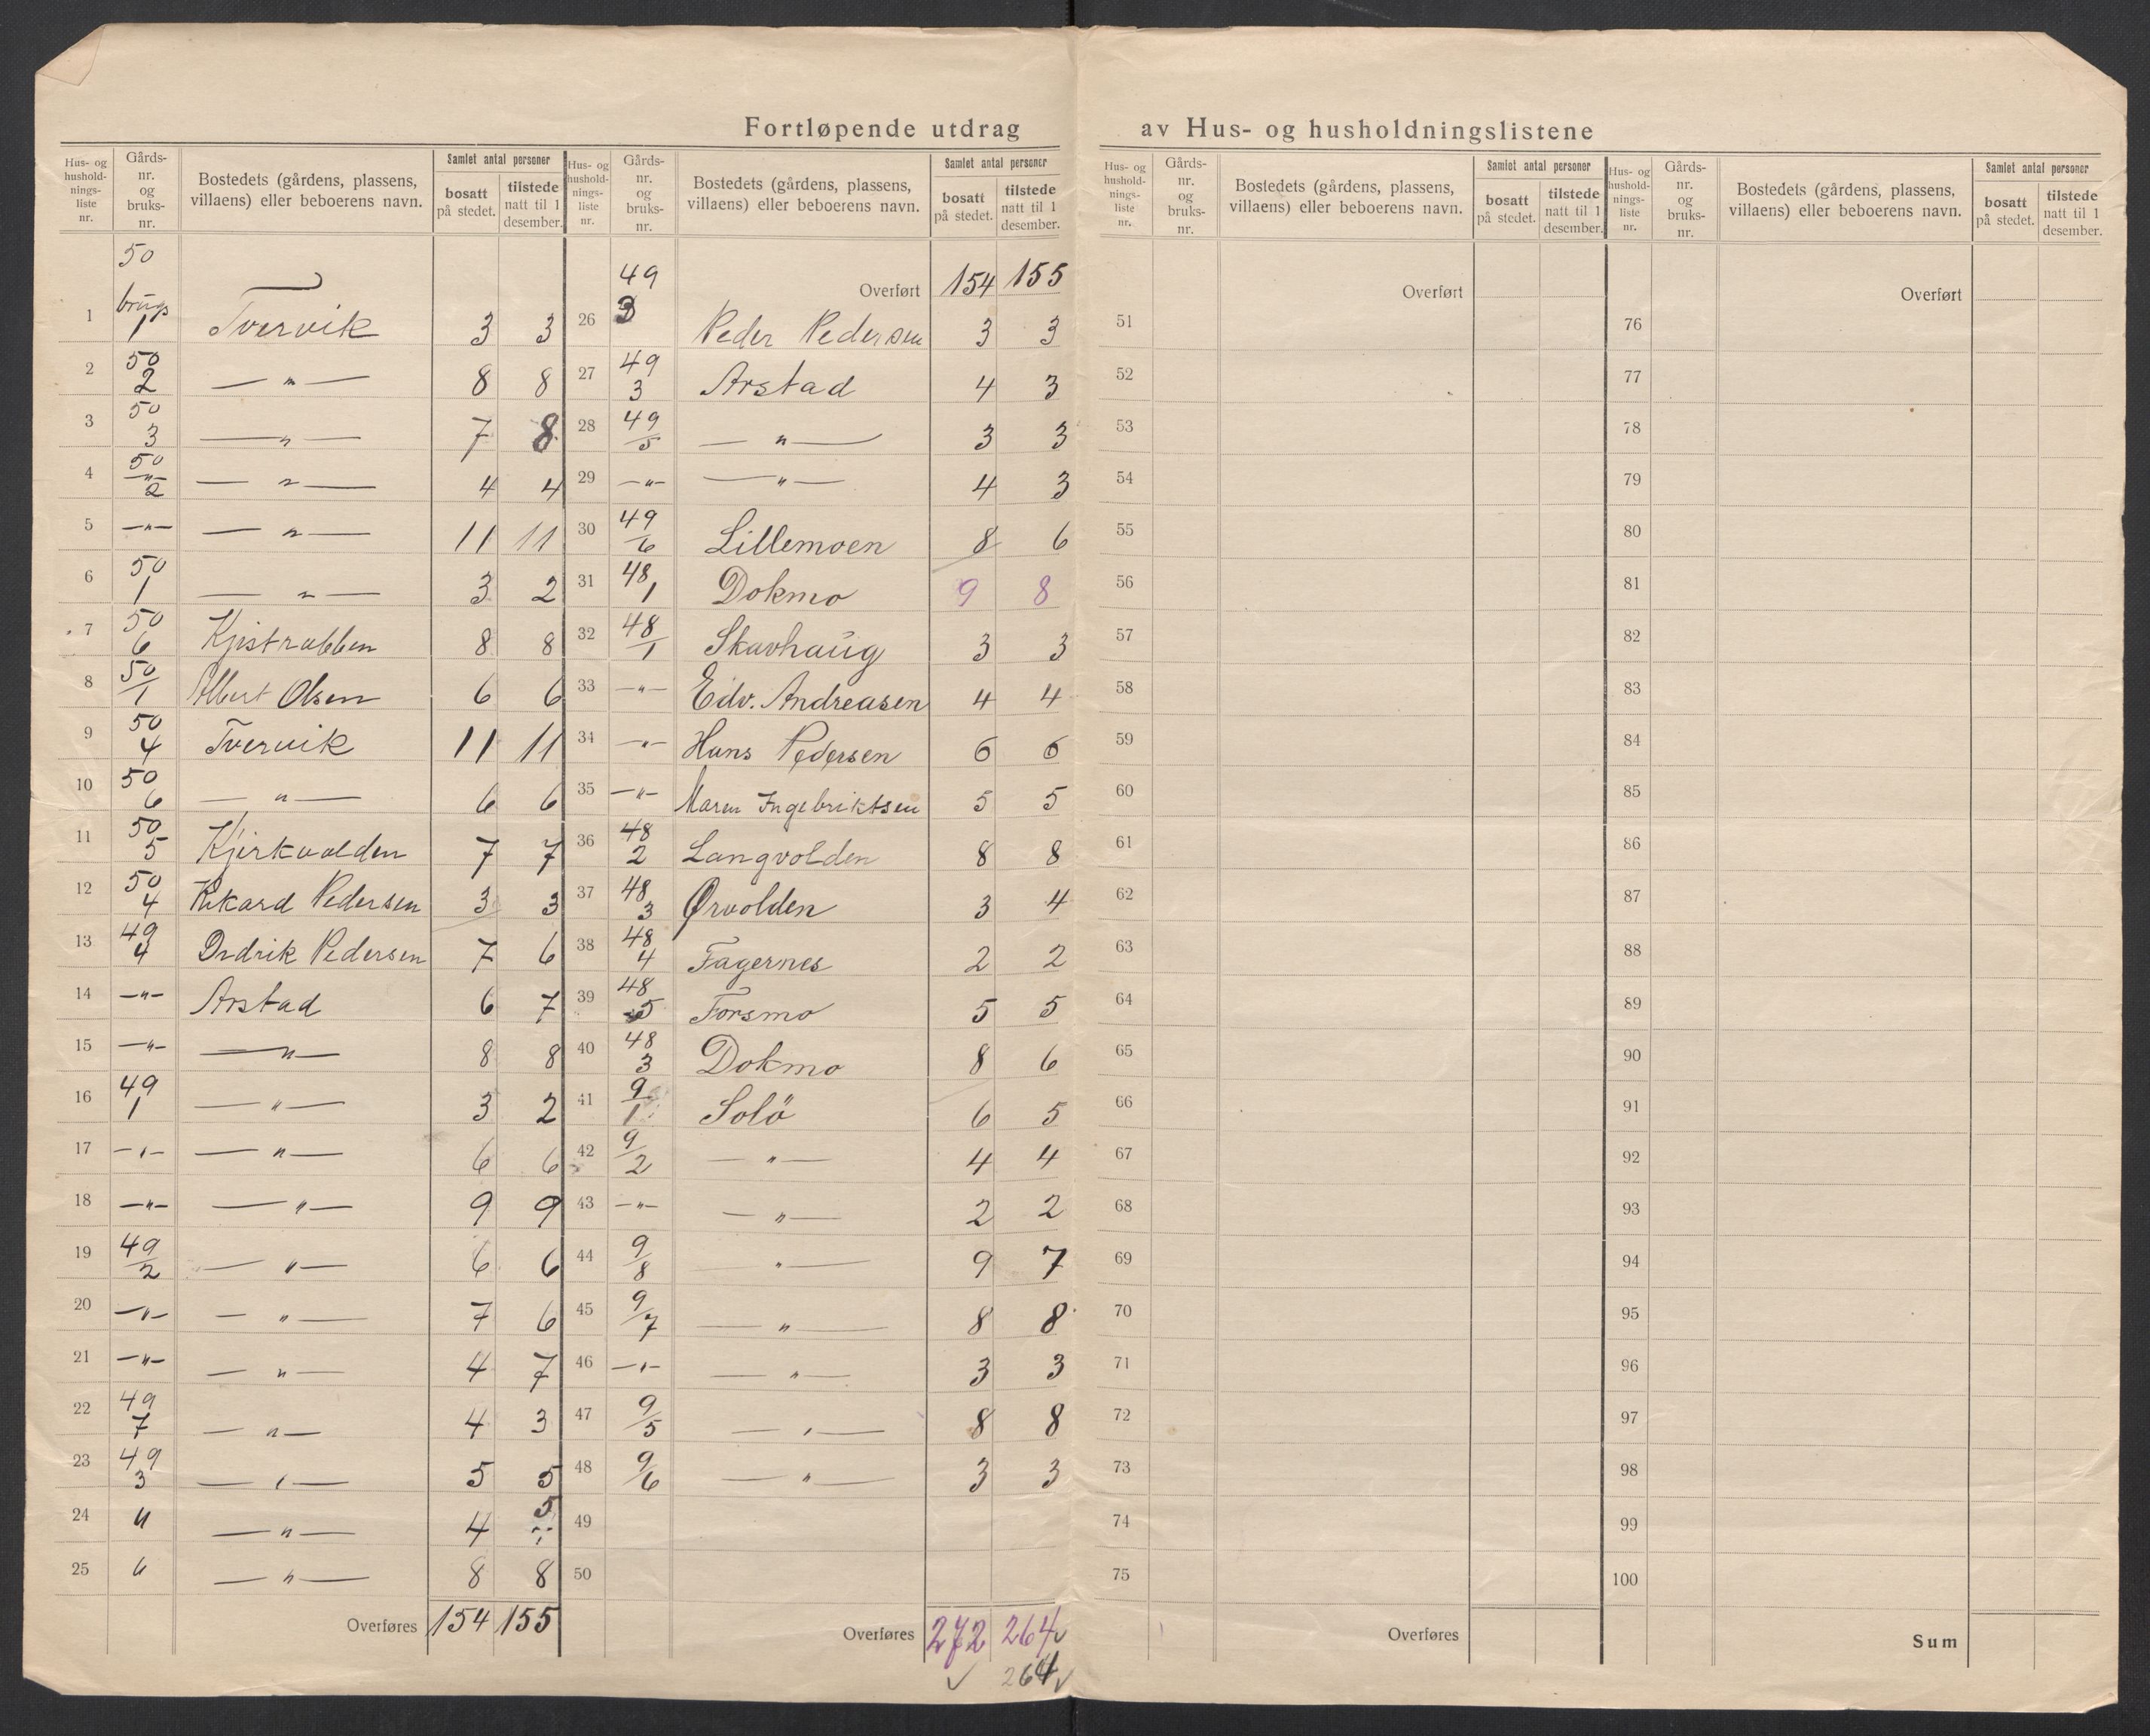 Fortløpende utdrag av Hus- og husholdningslistene
Hus- og hushold- nings- liste nr. | Gårds- nr. og bruks- nr. | Bostedets (gårdens, plassens, villaens) eller beboerens navn. | Samlet antal personer | bosatt på stedet. | tilstede natt til 1 desember.
50
1 brugs 1 Tvervik 3 3
2 50 2 — " — 8 8
3 50 3 — " — 7 8
4 50 -"- 2 — " — 4 4
5 -"- — " — 11 11
6 50 1 — " — 3 2
7 50 6 Kjistrabben 8 8
8 50/1 Albert Olsen 6 6
9 50 4 Tvervik 11 11
10 50 6 — " — 6 6
11 50 5 Kjerkvolden 7 7
12 50 4 Rikard Pedersen 3 3
13 49 4 Pedersen 7 6
14 -"- Arstad 6 7
15 -"- — " — 8 8
16 49 1 — " — 3 2
17 -"- — " — 6 6
18 -"- — " — 9 9
19 49/2 — " — 6 6
20 -"- — " — 7 6
21 -"- — " — 4 7
22 49 7 — " — 4 3
23 49 3 — " — 5 5
24 " — " — 4 5
25 6 — " — 8 8
Overføres 154 155
Hus- og hushold- nings- liste nr. | Gårds- nr. og bruks- nr. | Bostedets (gårdens, plassens, villaens) eller beboerens navn. | Samlet antal personer | bosatt på stedet. | tilstede natt til 1 desember.
Overført 154 155
26 49 3 Peder Pedersen 3 3
27 49 3 Arstad 4 3
28 49/5 — " — 3 3
29 -"- — " — 4 3
30 49/6 Lillemoen 8 6
31 48 1 Dokmo 9 8
32 48/1 Skavhaug 3 3
33 -"- Edv. Andreasen 4 4
34 -"- Hans Pedersen 6 6
35 -"- Maren Ingebriktsen 5 5
36 48 2 Langvolden 8 8
37 48 3 Ørvolden 3 4
38 48 4 Fagernes 2 2
39 48 5 Forsmo 5 5
40 48 3 Dokmo 8 6
41 9/1 Solö 6 5
42 9/2 — " — 4 4
43 -"- — " — 2 2
44 9/8 — " — 9 7
45 9/7 — " — 8 8
46 -"- — " — 3 3
47 9/5 — " — 8 8
48 9/6 — " — 3 3
49
50
Overføres 272 264 ✓
✓ 264 ✓
Hus- og hushold- nings- liste nr. | Gårds- nr. og bruks- nr. | Bostedets (gårdens, plassens, villaens) eller beboerens navn. | Samlet antal personer | bosatt på stedet. | tilstede natt til 1 desember.
Overført
51
52
53
54
55
56
57
58
59
60
61
62
63
64
65
66
67
68
69
70
71
72
73
74
75
Overføres
Hus- og hushold- nings- liste nr. | Gårds- nr. og bruks- nr. | Bostedets (gårdens, plassens, villaens) eller beboerens navn. | Samlet antal personer | bosatt på stedet. | tilstede natt til 1 desember.
Overført
76
77
78
79
80
81
82
83
84
85
86
87
88
89
90
91
92
93
94
95
96
97
98
99
100
Sum